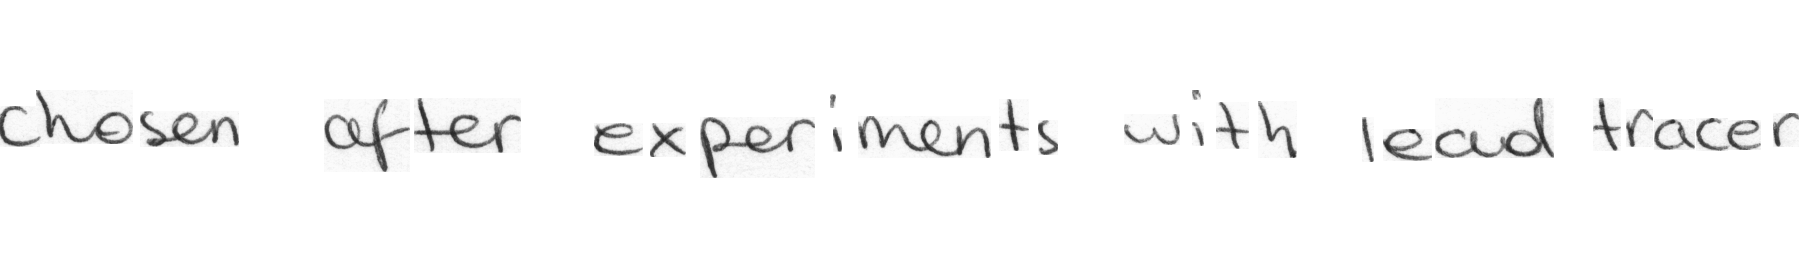 chosen after experiments with lead tracer